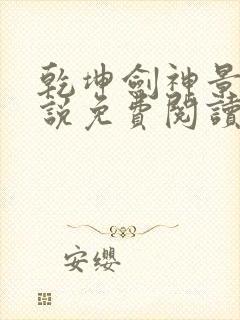 乾坤劍神景
說免費閱讀
安纓